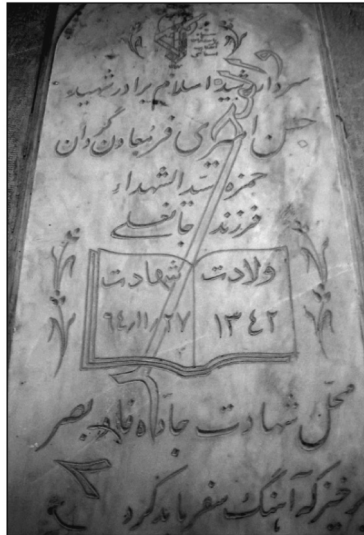 سردار رشید اسلام برادر شهید
حسن امیری فر معاون گردان
حمزه سیدالشهداء
فرزند جانعلی
ولادت شهادت
۱۳۴۲ ۶۴/۱۱/۲۷
محل شهادت جاده فاو بصره
برخیز که آهنگ سفر باید کرد